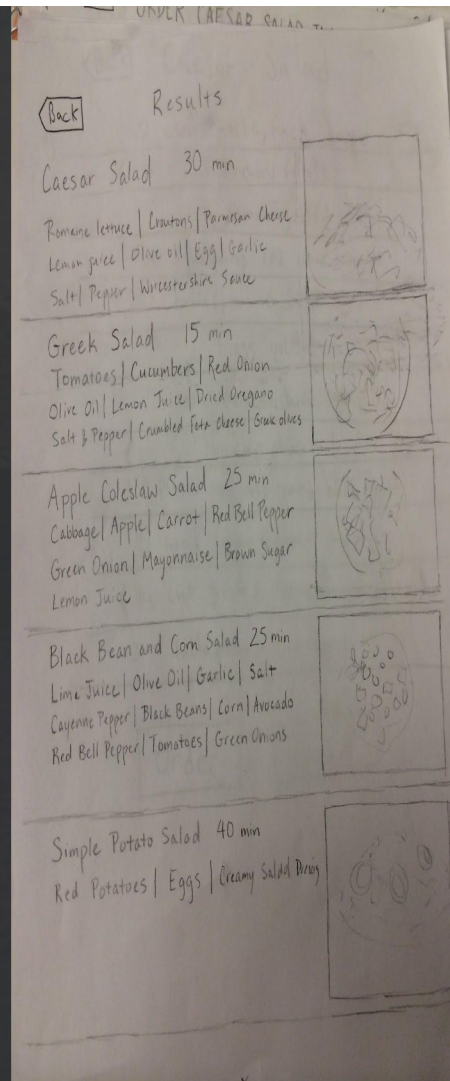 ORDER CAESAR SALAD
Back
Results
Caesar Salad 30 min
Romaine lettuce | Croutons | Parmesan Cheese
Lemon juice | Olive oil | Egg | Garlic
Salt | Pepper | Worcestershire Sauce
Greek Salad 15 min
Tomatoes | Cucumbers | Red Onion
Olive Oil | Lemon Juice | Dried Oregano
Salt & Pepper | Crumbled Feta Cheese | Greek olives
Apple Coleslaw Salad 25 min
Cabbage | Apple | Carrot | Red Bell Pepper
Green Onion | Mayonnaise | Brown Sugar
Lemon Juice
Black Bean and Corn Salad 25 min
Lime Juice | Olive Oil | Garlic | Salt
Cayenne Pepper | Black Beans | Corn | Avocado
Red Bell Pepper | Tomatoes | Green Onions
Simple Potato Salad 40 min
Red Potatoes | Eggs | Creamy